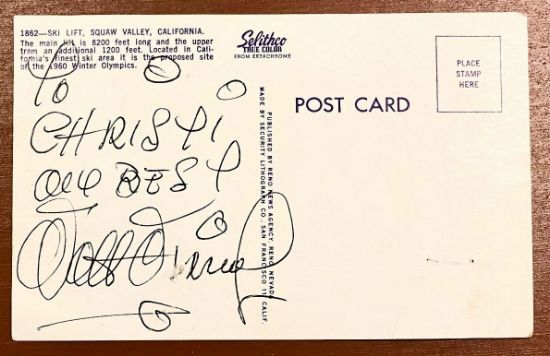 1862—SKI LIFT, SQUAW VALLEY, CALIFORNIA.
The main lift is 8200 feet long and the upper
tram an additional 1200 feet. Located in Cali-
fornia's finest ski area it is the proposed site
of the 1960 Winter Olympics.
Selithco
TRUE COLOR
FROM EKTACHROME
PLACE
STAMP
HERE
POST CARD
PUBLISHED BY RENO NEWS AGENCY, RENO, NEVADA
MADE BY SECURITY LITHOGRAPH CO., SAN FRANCISCO 11, CALIF.
TO
CHRISTI
OUR BEST
Walt Disney